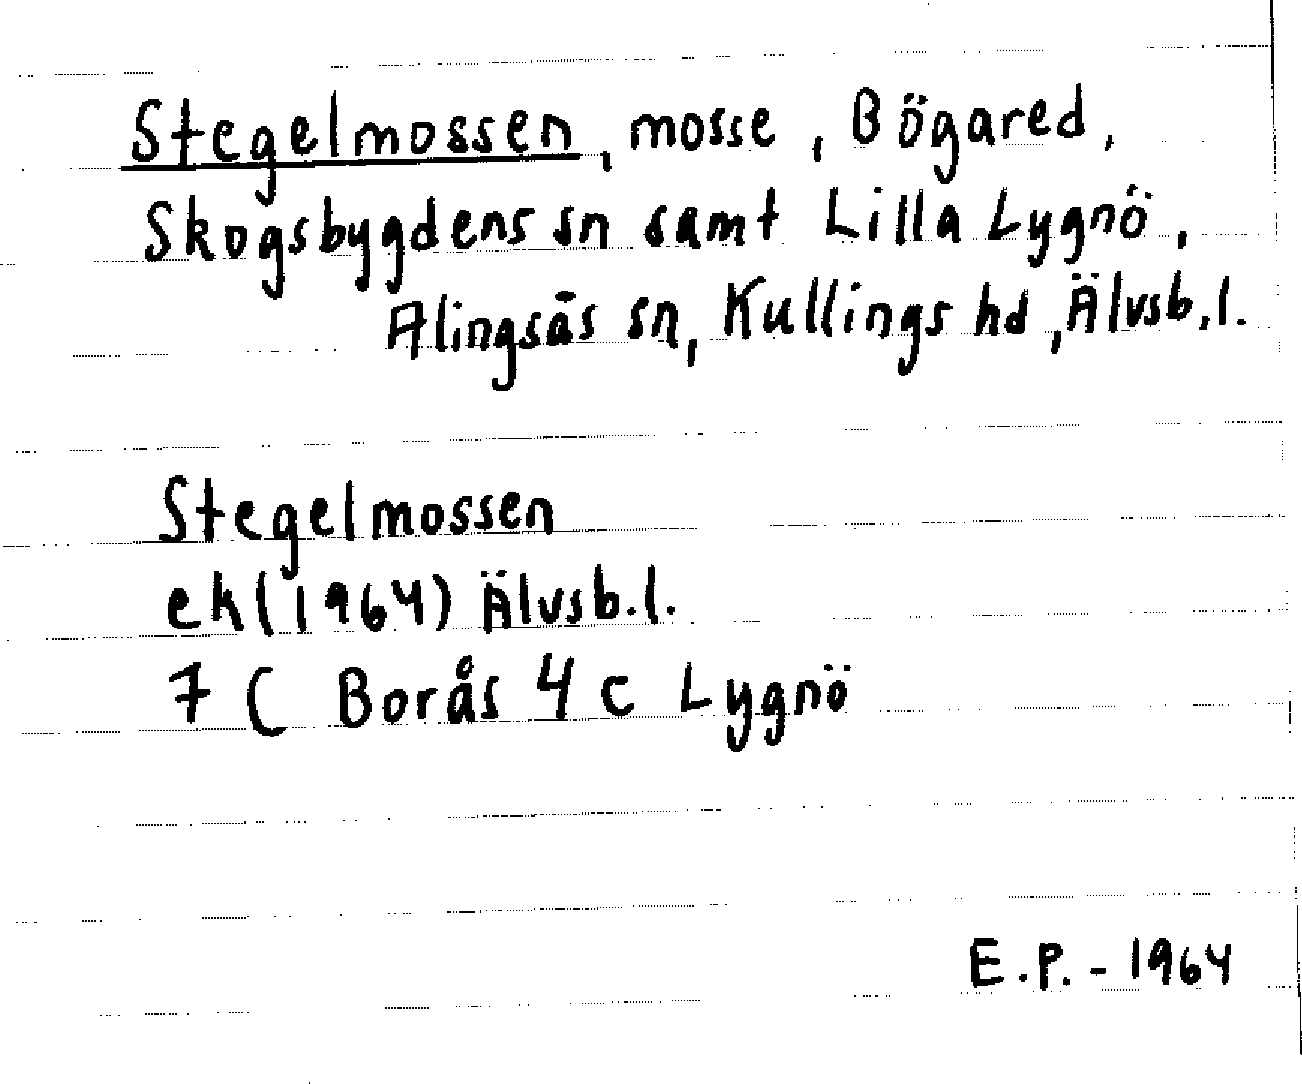 Stegelmossen, mosse, Bögared,
Skogsbygdens sn samt Lilla Lygnö,
Alingsås sn, Kullings hd, Älvsb.l.
Stegelmossen
ek (1964) Älvsb.l.
7 C Borås 4 c Lygnö
E.P. - 1964